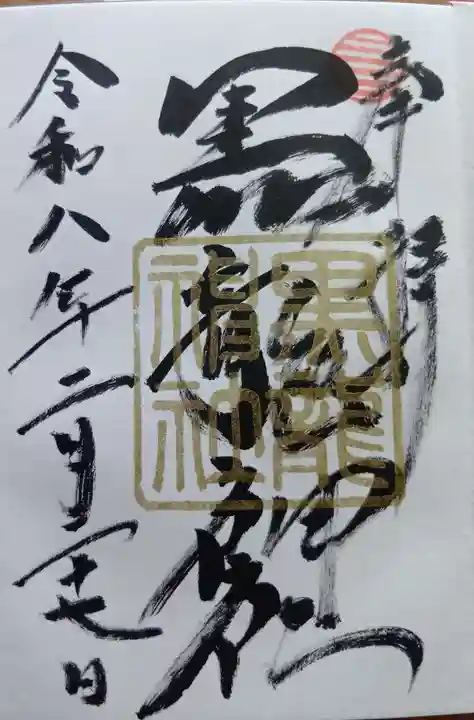 奉拝
黒龍神社
黒龍神社
令和八年二月二十七日